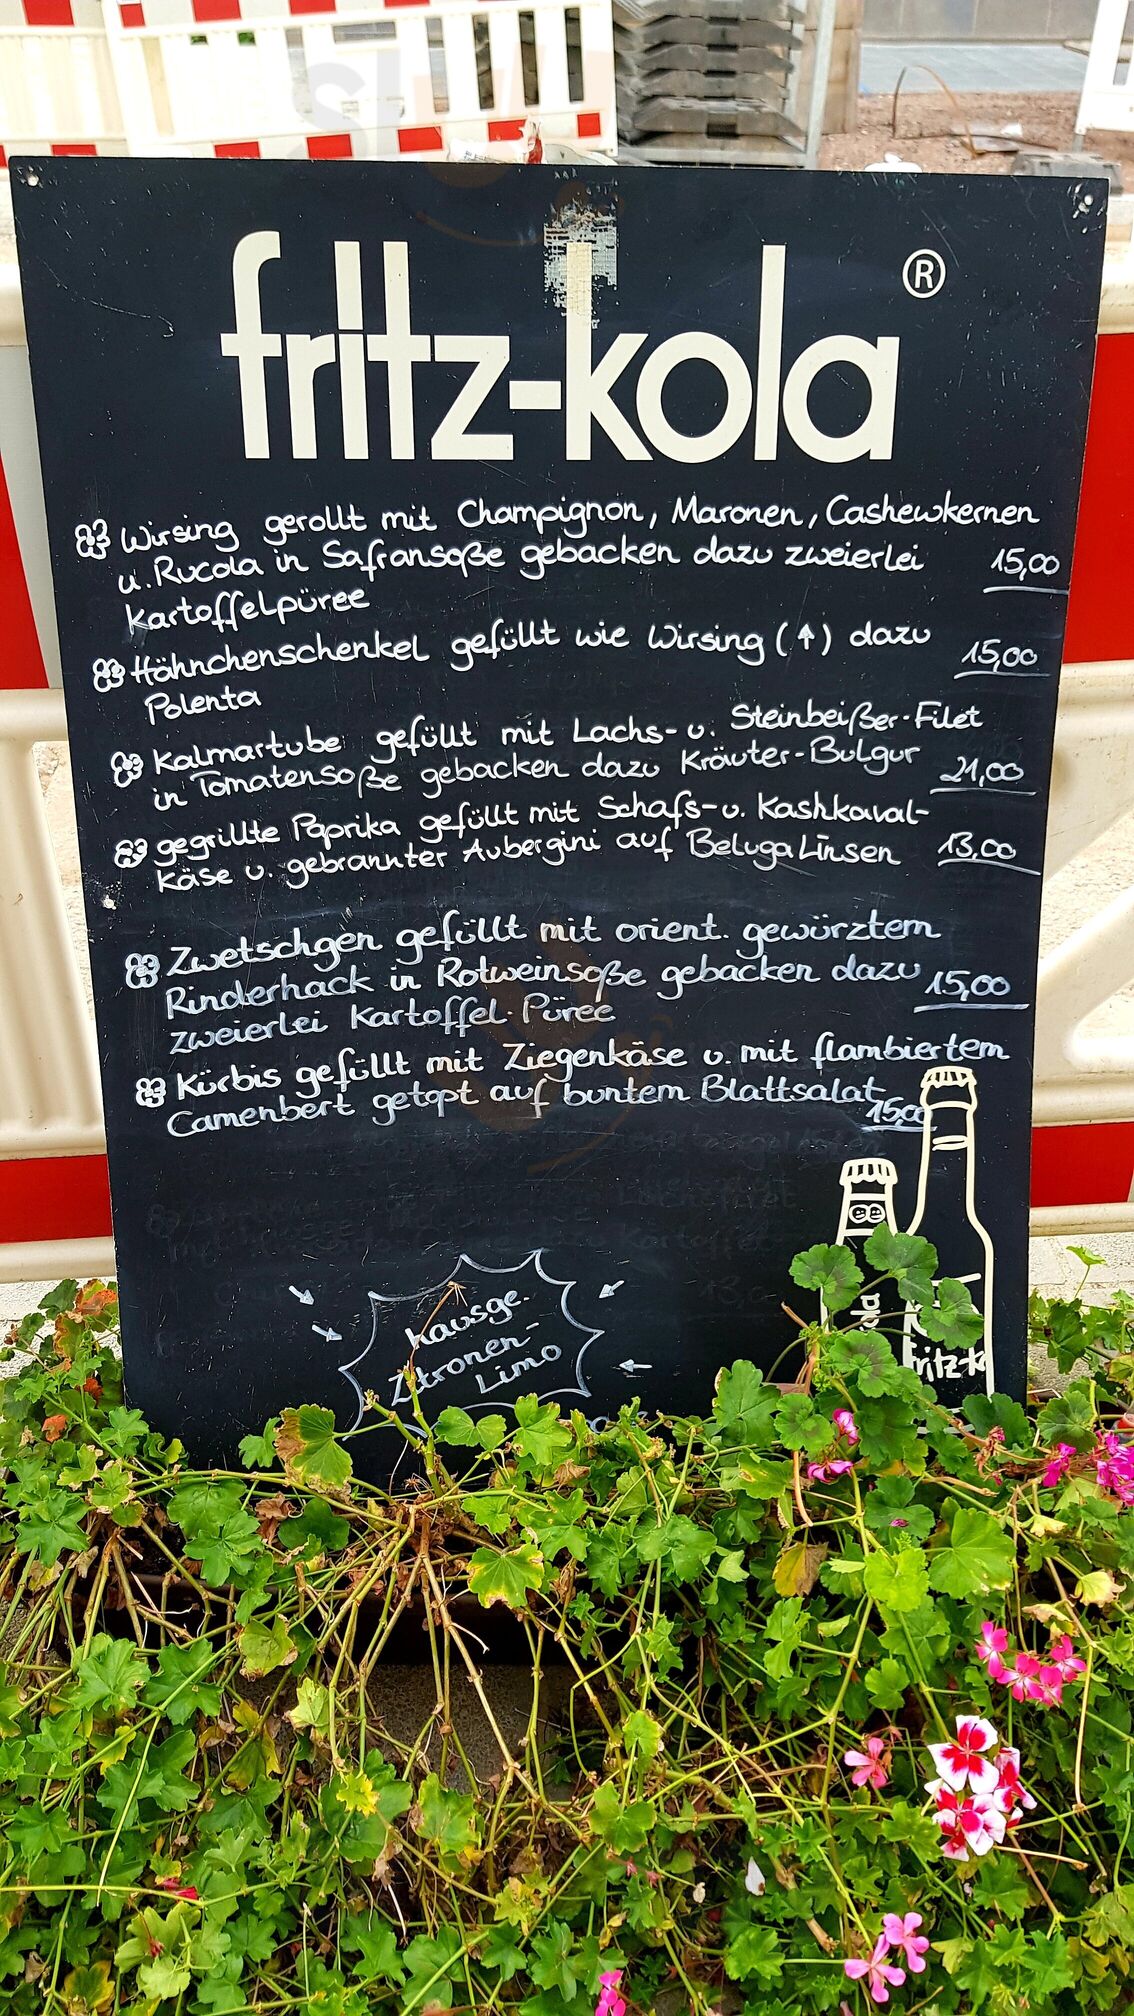 fritz-kola®
Wirsing gerollt mit Champignon, Maronen, Cashewkernen
u. Rucola in Safransoße gebacken dazu zweierlei 15,00
Kartoffelpüree
Hähnchenschenkel gefüllt wie Wirsing (↑) dazu 15,00
Polenta
Kalmartube gefüllt mit Lachs- u. Steinbeißer-Filet
in Tomatensoße gebacken dazu Kräuter-Bulgur 21,00
gegrillte Paprika gefüllt mit Schafs- u. Kashkaval-
käse u. gebrannter Aubergini auf Beluga Linsen 13,00
Zwetschgen gefüllt mit orient. gewürztem
Rinderhack in Rotweinsoße gebacken dazu 15,00
zweierlei Kartoffel-Püree
Kürbis gefüllt mit Ziegenkäse u. mit flambiertem
Camenbert getopt auf buntem Blattsalat 15,00
Hausge.
Zitronen-
Limo